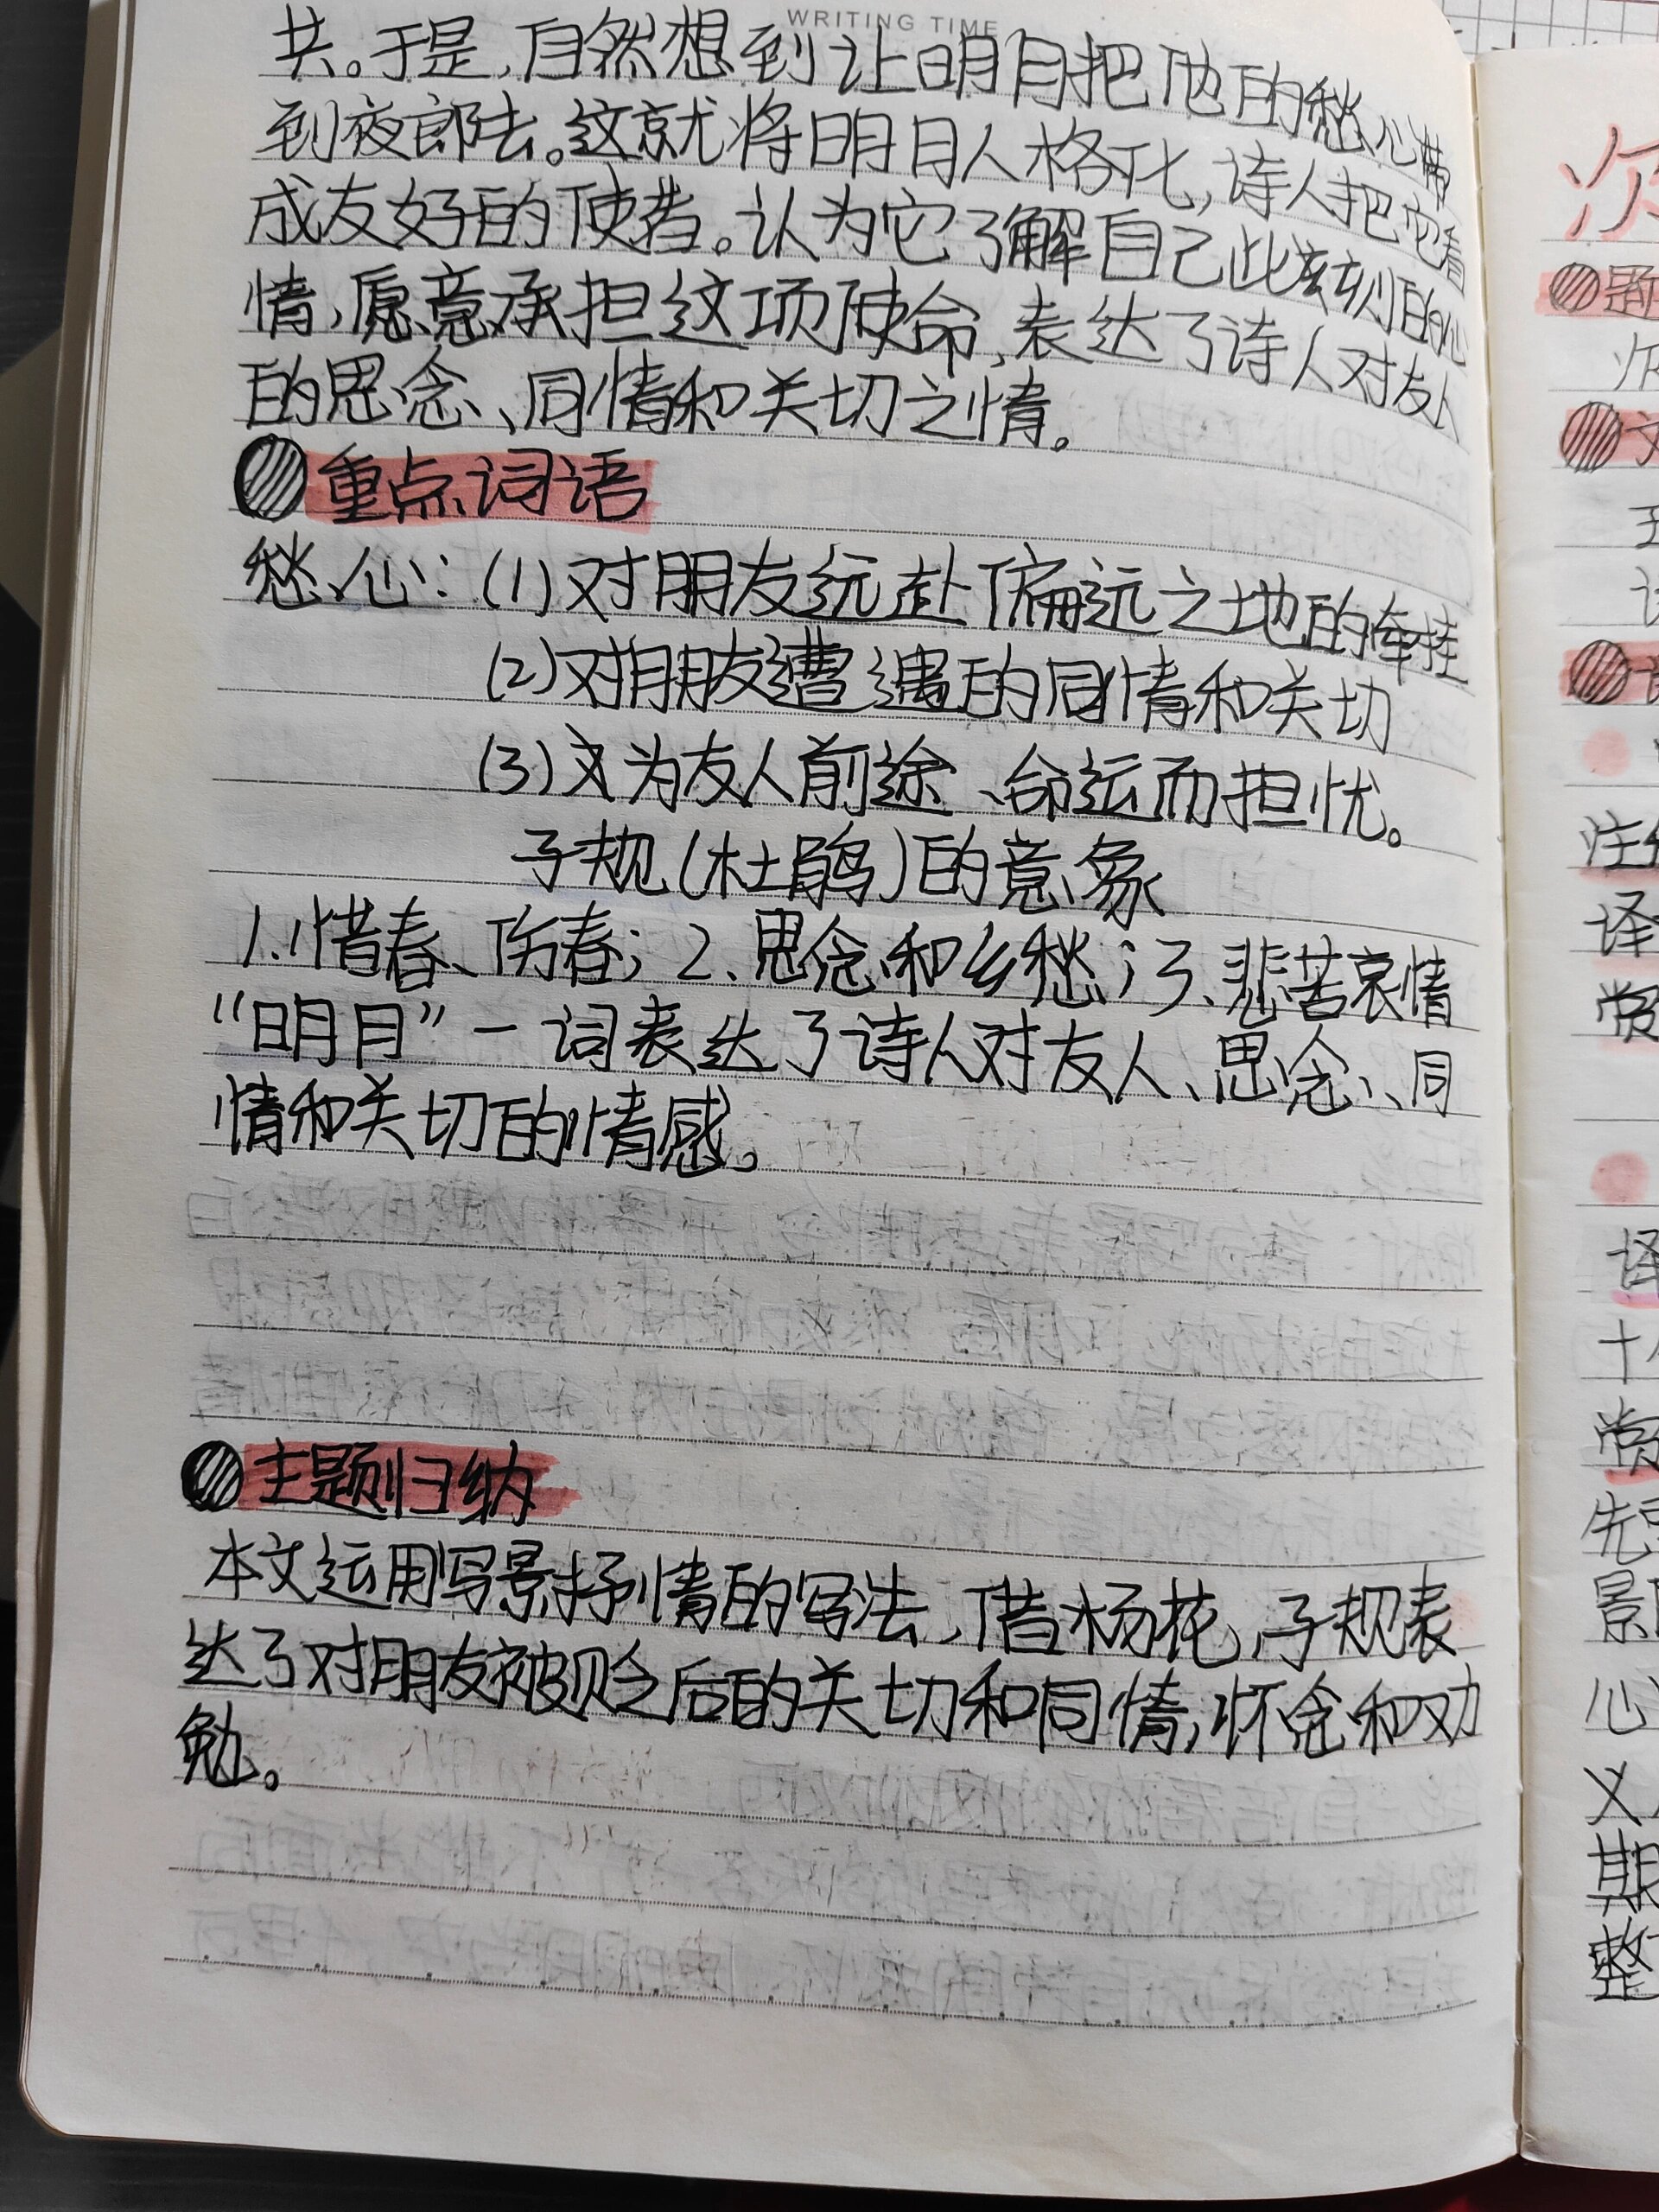 WRITING TIME
共。于是,自然想到让明月把他的愁心带
到夜郎去。这就将明月人格化,诗人把它看
成友好的使者。认为它了解自己此刻的心
情,愿意承担这项使命,表达了诗人对友人
的思念、同情和关切之情。
重点词语
愁心:(1)对朋友远赴偏远之地的牵挂
(2)对朋友遭遇的同情和关切
(3)又为友人前途、命运而担忧。
子规(杜鹃)的意象
1.惜春、伤春;2、思念和乡愁;3、悲苦哀情
“明月”一词表达了诗人对友人、思念、同
情和关切的情感。
主题归纳
本文运用写景抒情的写法,借杨花,子规表
达了对朋友被贬之后的关切和同情,怀念和劝
勉。
次
注
译
赏
译
十
赏
先
景
心
义
期
整